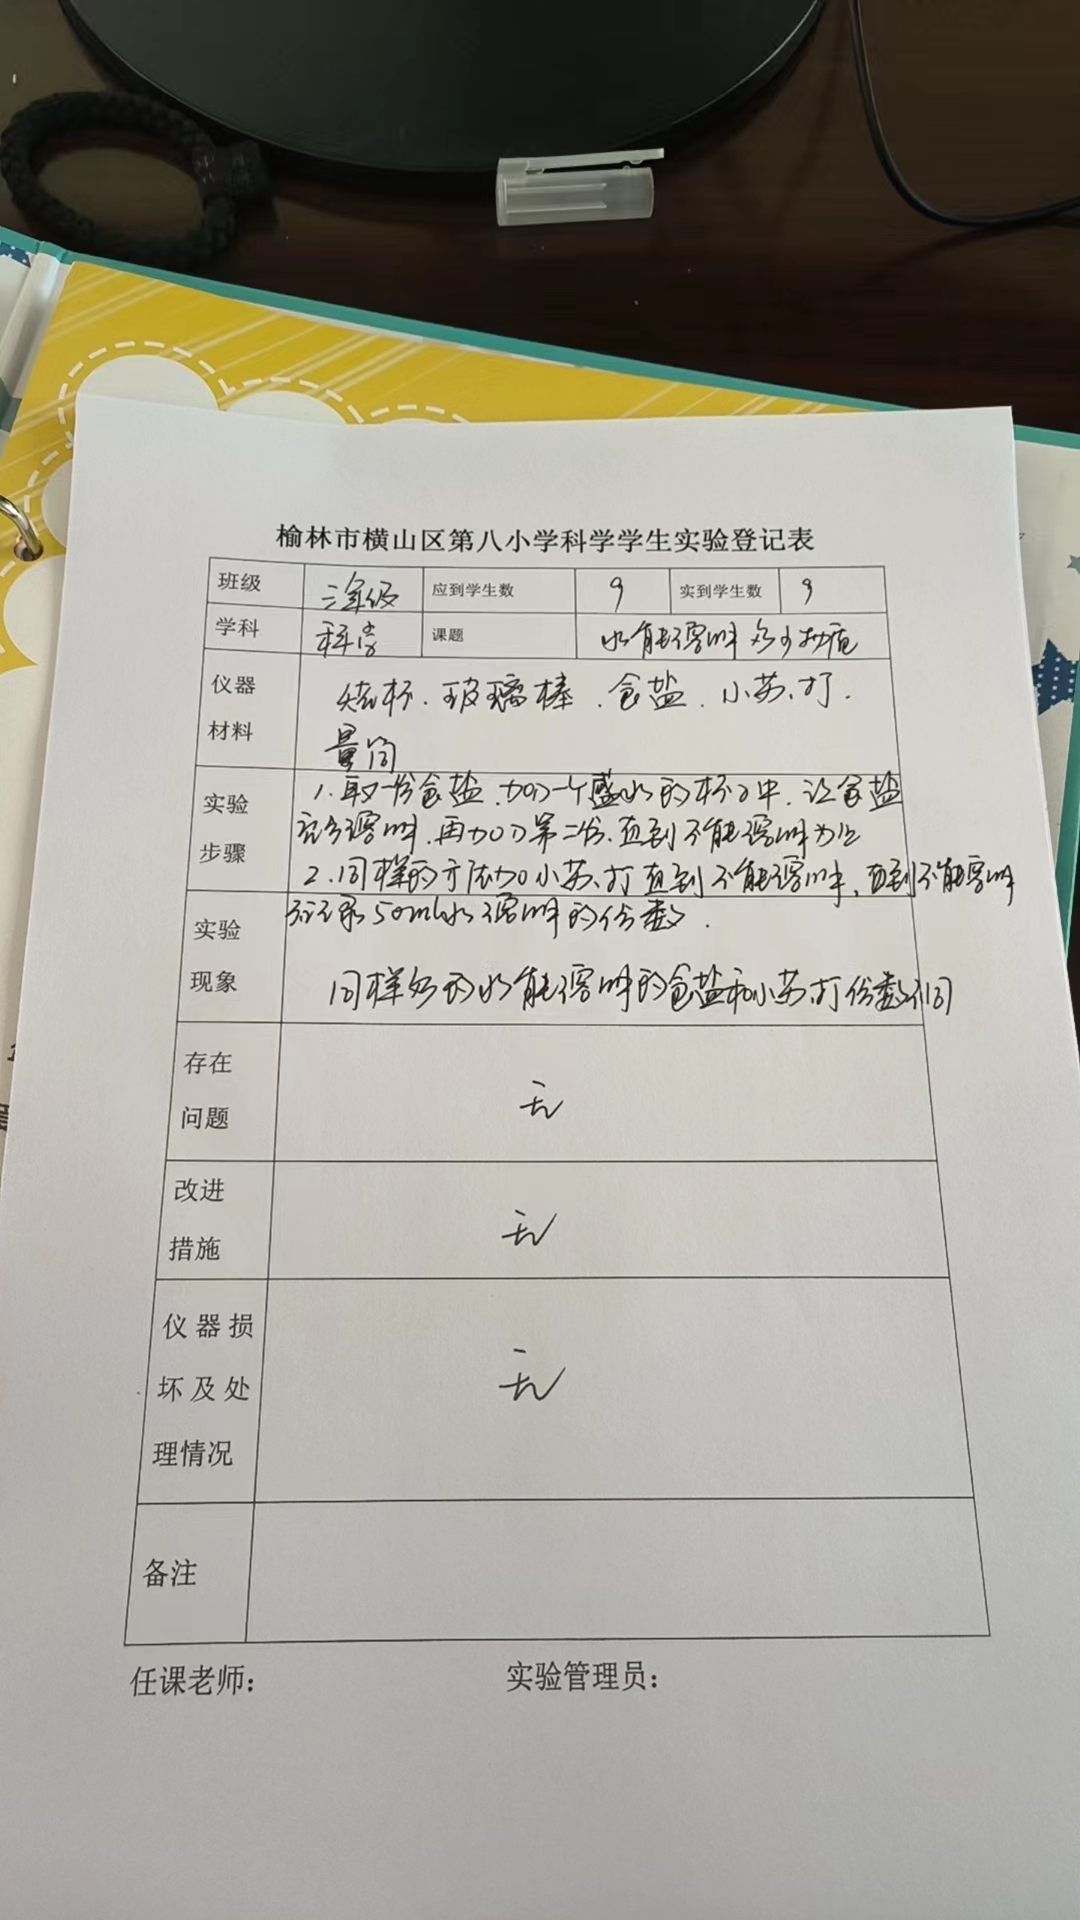 榆林市横山区第八小学科学学生实验登记表
班级 三年级 应到学生数 9 实到学生数 9
学科 科学 课题 水能溶解多少物质
仪器 烧杯．玻璃棒．食盐．小苏打．
材料 量筒
实验 1.取一份食盐，加入一个盛水的杯子中，让食盐
充分溶解，再加入第二份，直到不能溶解为止
步骤 2.同样的方法加小苏打直到不能溶解，直到不能溶解
实验 记录50ml水溶解的份数．
现象 同样多的水能溶解的食盐和小苏打份数不同
存在
问题 无
改进
措施 无
仪器损
坏及处 无
理情况
备注
任课老师： 实验管理员：